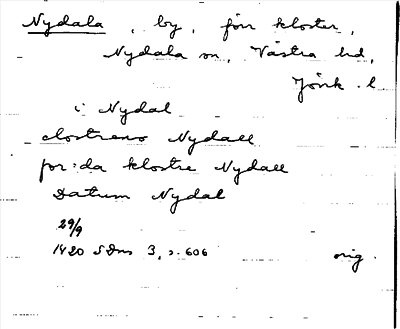 Nydala, by, förr kloster,
Nydala sn, Västra hd,
Jönk. l
i Nydal
clostreno Nydall
for:da klostre Nydall
Datum Nydal
29/9
1420 SDns 3, s. 606 orig.